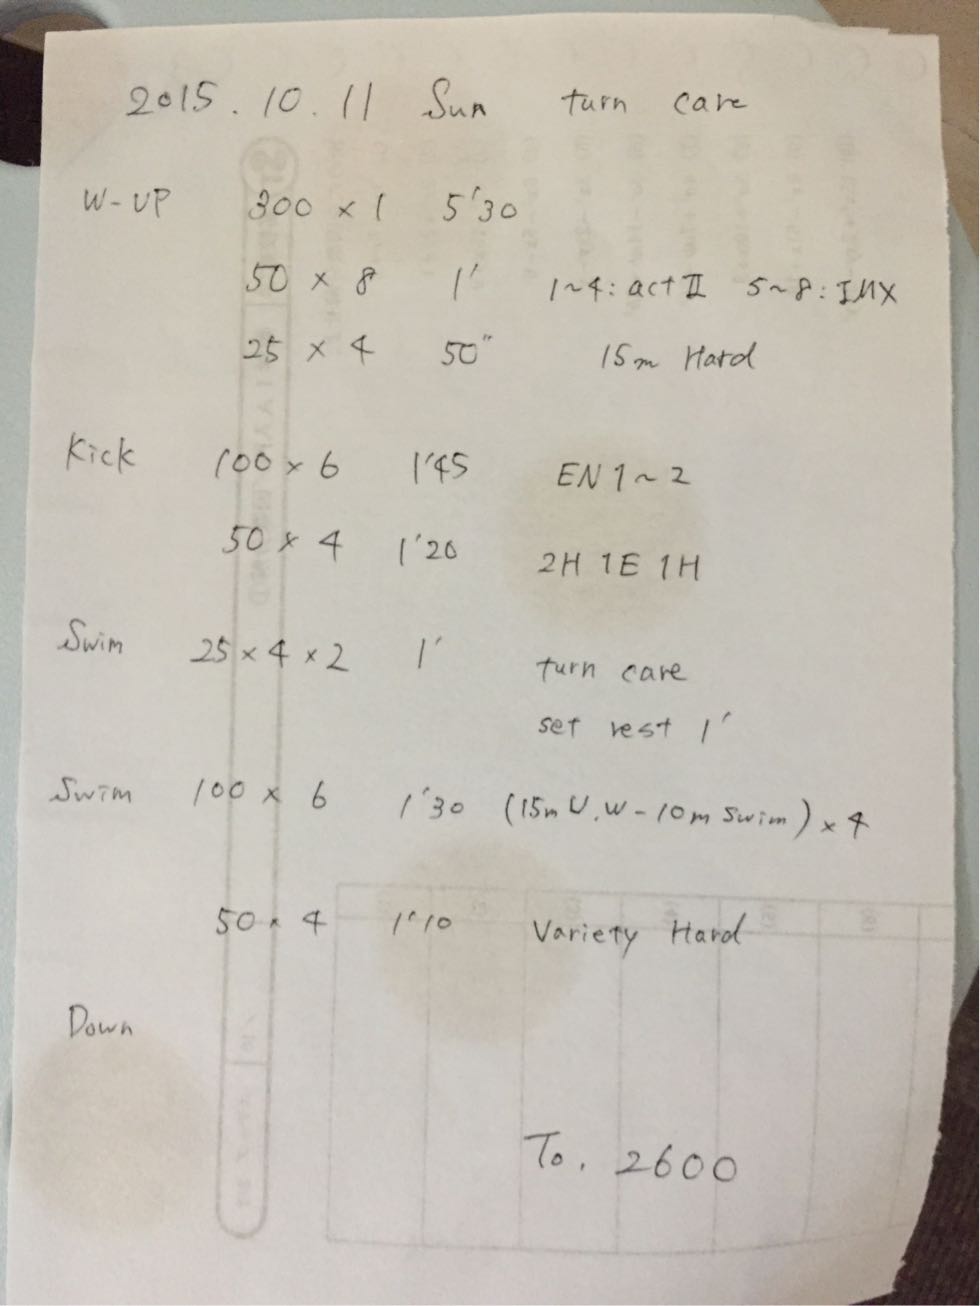 2015.10.11 Sun turn care
W-UP 300 × 1 5'30
50 × 8 1' 1~4: act II 5~8: IMX
25 × 4 50" 15m Hard
Kick 100 × 6 1'45 EN 1~2
50 × 4 1'20 2H 1E 1H
Swim 25 × 4 × 2 1' turn care
set rest 1'
Swim 100 × 6 1'30 (15m U.W - 10m Swim) × 4
50 × 4 1'10 Variety Hard
Down
To. 2600